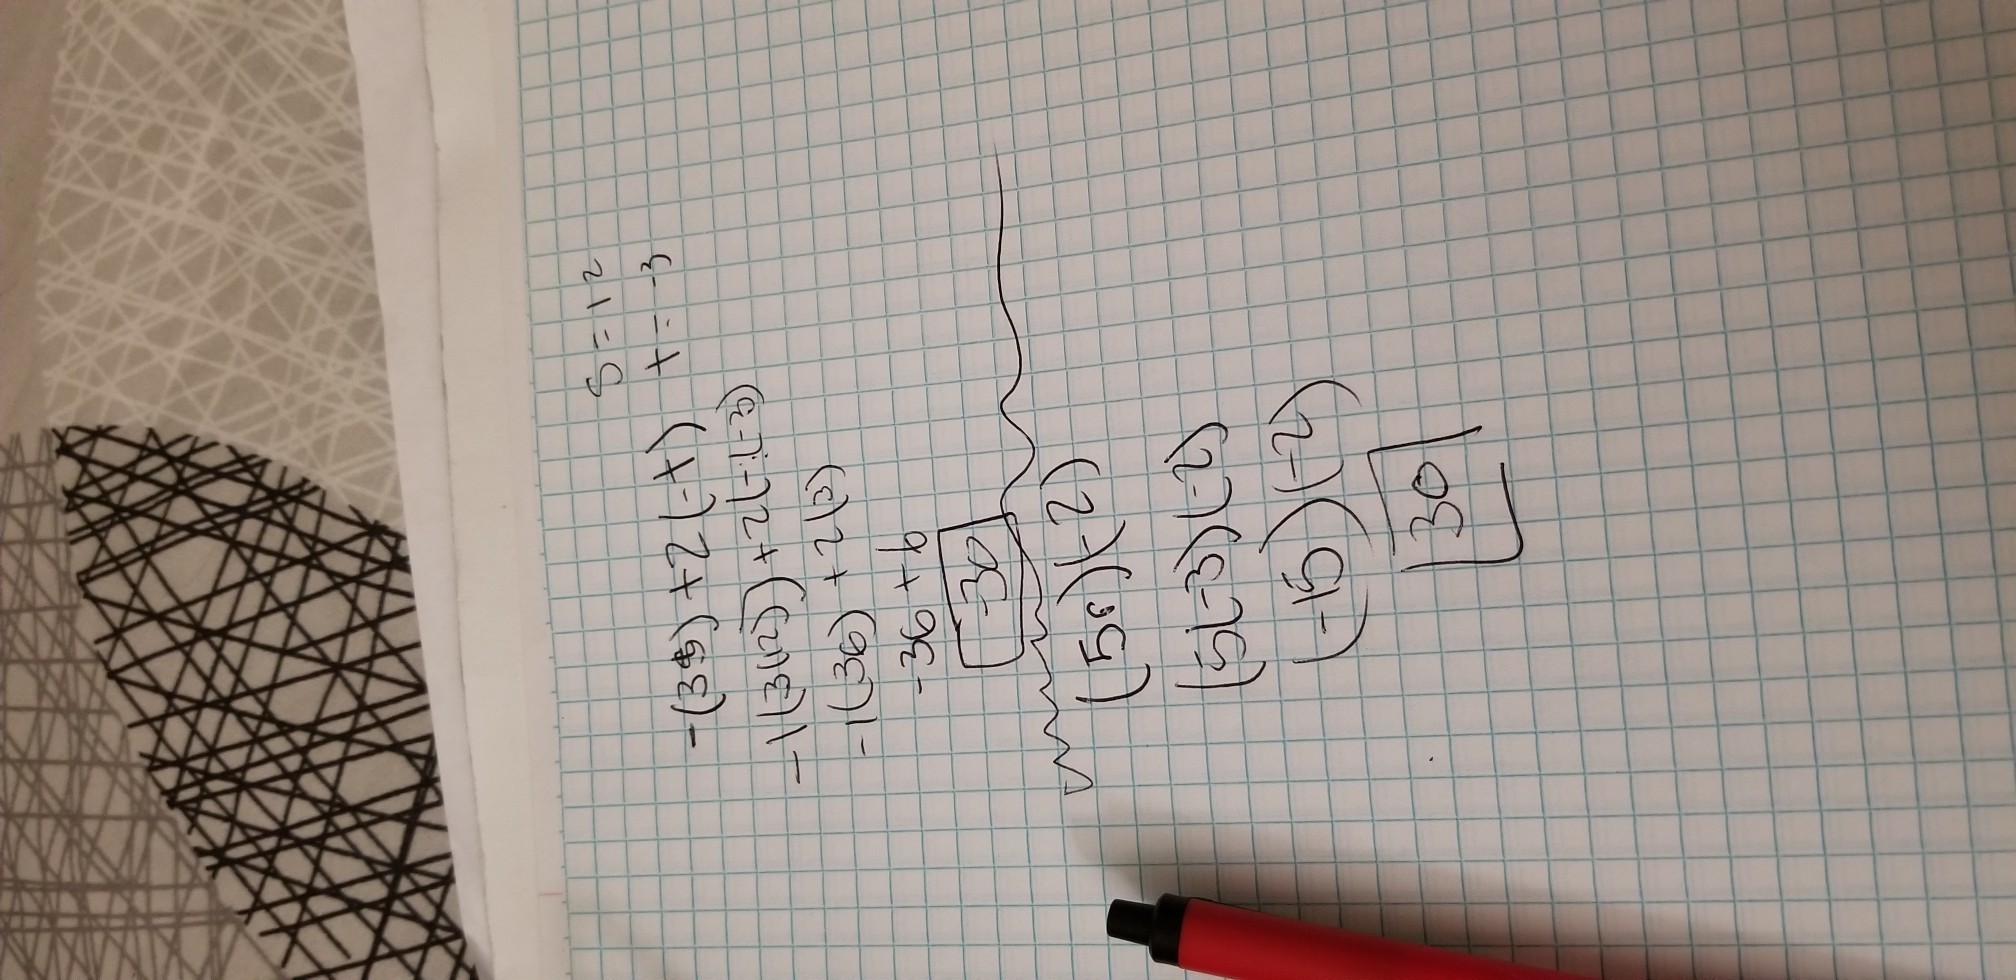 s = 12
x = -3
-(3s) + 2(-x)
-1(3(12)) + 2(-(-3)
-1(36) + 2(3)
-36 + 6
-30
(5c)(-2)
(5(-3)(-2)
(-15)(-2)
30